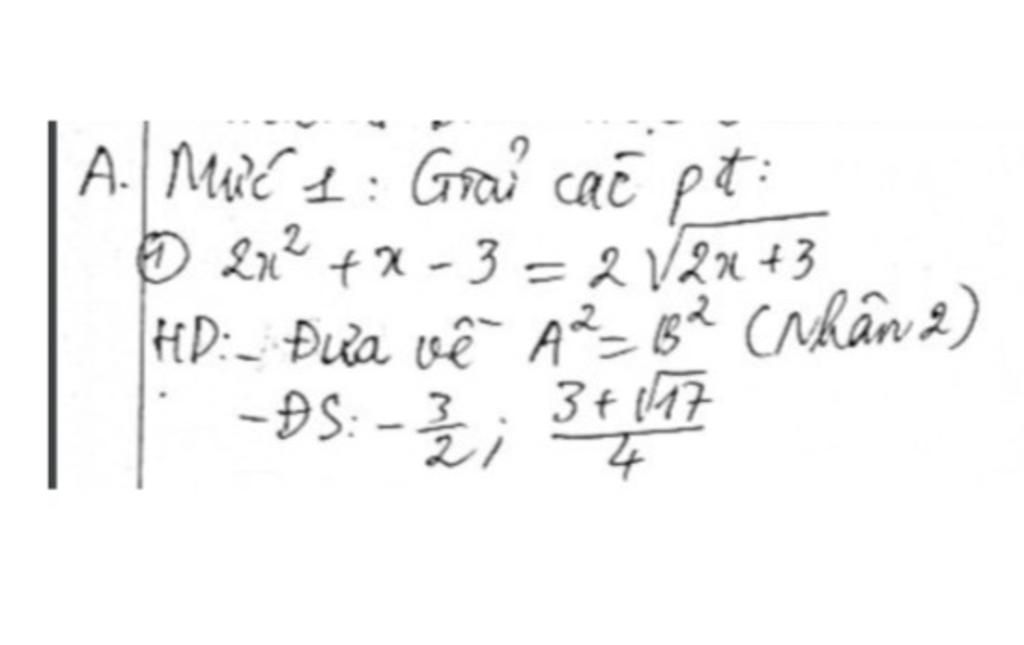 A. Mức 1: Giải các pt:
① 2x² + x - 3 = 2√(2x+3)
HD: - Đưa về A² = B² (Nhân 2)
- ĐS: -3/2; (3+√17)/4